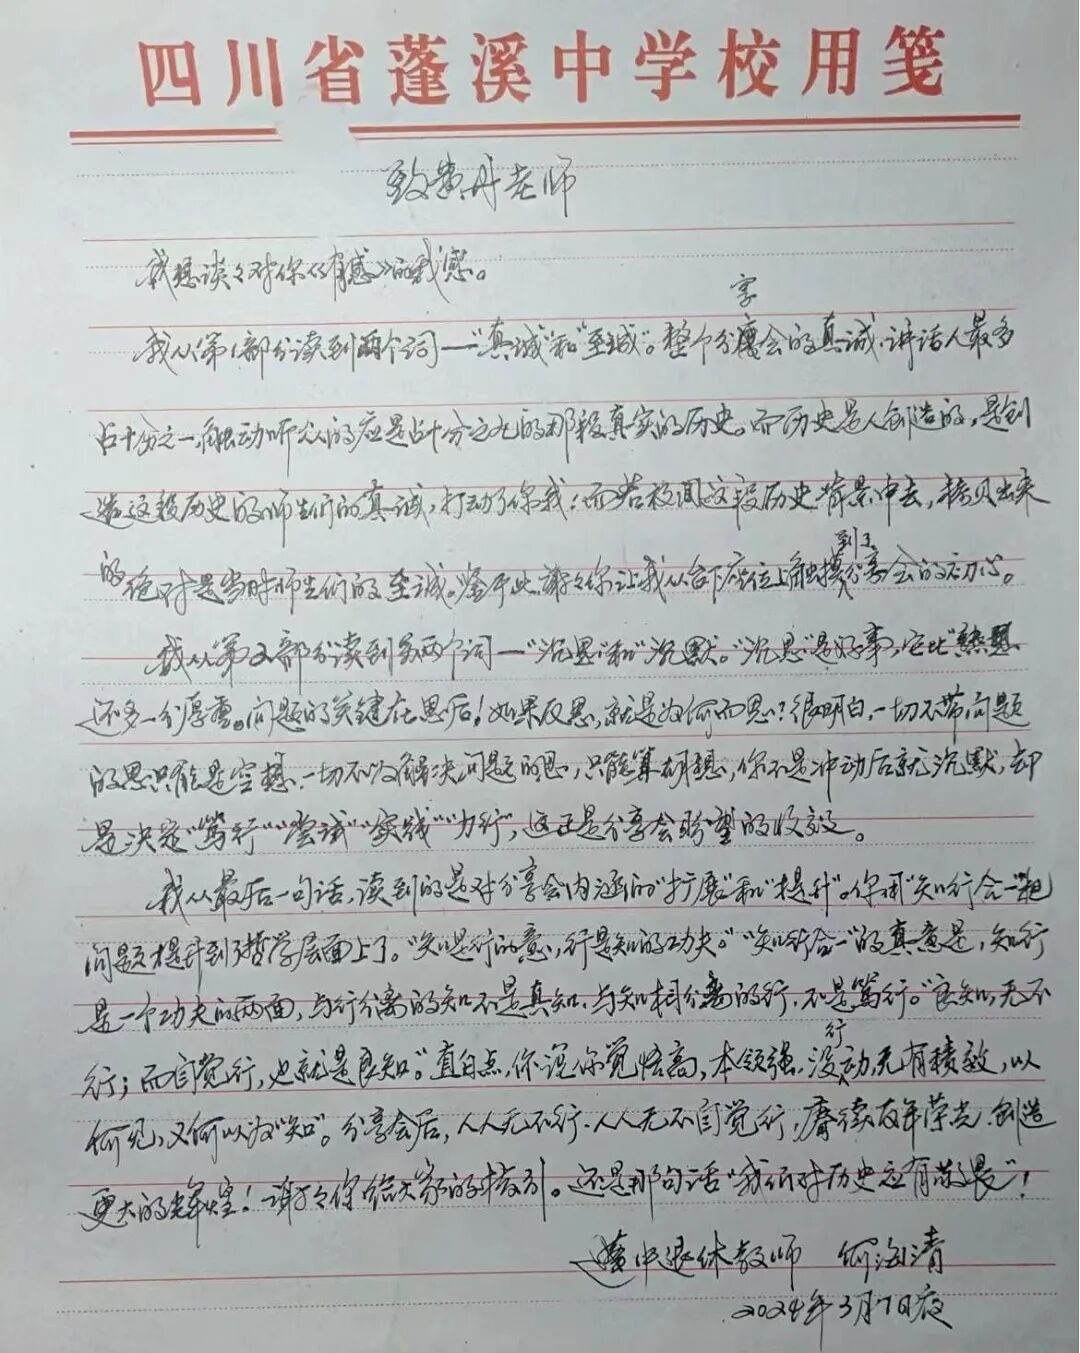 四川省蓬溪中学校用笺
致黄丹老师
我想谈谈对你《有感》的我感。
我从第1部分读到两个词——“真诚”和“至诚”。整个分享会的真诚，讲话人最多
占十分之一，触动听众的应是占十分之九的那段真实的历史。而历史是人创造的，是创
造这段历史的师生们的真诚，打动了你我；而若放回这段历史背景中去，拷贝出来
的绝对是当时师生们的至诚。鉴于此，谢谢你让我从台下座位上触摸到了分享会的初心。
我从第2部分读到另两个词——“沉思”和“沉默”。“沉思”是好事，它比“熟思”
还多一分厚重。问题的关键在思后！如果反思，就是为何而思？很明白，一切不带问题
的思只能是空想，一切不为解决问题的思，只能算胡想，你不是冲动后就沉默，却
是决定“笃行”“尝试”“实践”“力行”，这正是分享会盼望的收效。
我从最后一句话，读到的是对分享会内涵的“扩展”和“提升”。你用“知行合一”把
问题提升到了哲学层面上了。“知是行的意，行是知的功夫。”“知行合一”的真意是，知行
是一个功夫的两面，与行分离的知不是真知，与知相分离的行，不是笃行。“良知，无不
行；而自觉行，也就是良知。”直白点，你说你觉悟高，本领强，没行动，无有绩效，以
何见，又何以为“知”。分享会后，人人无不行，人人无不自觉行，赓续百年荣光，创造
更大的辉煌！谢谢你给大家的指引。还是那句话“我们对历史应有敬畏”！
蓬中退休教师　何海清
2024年3月7日夜